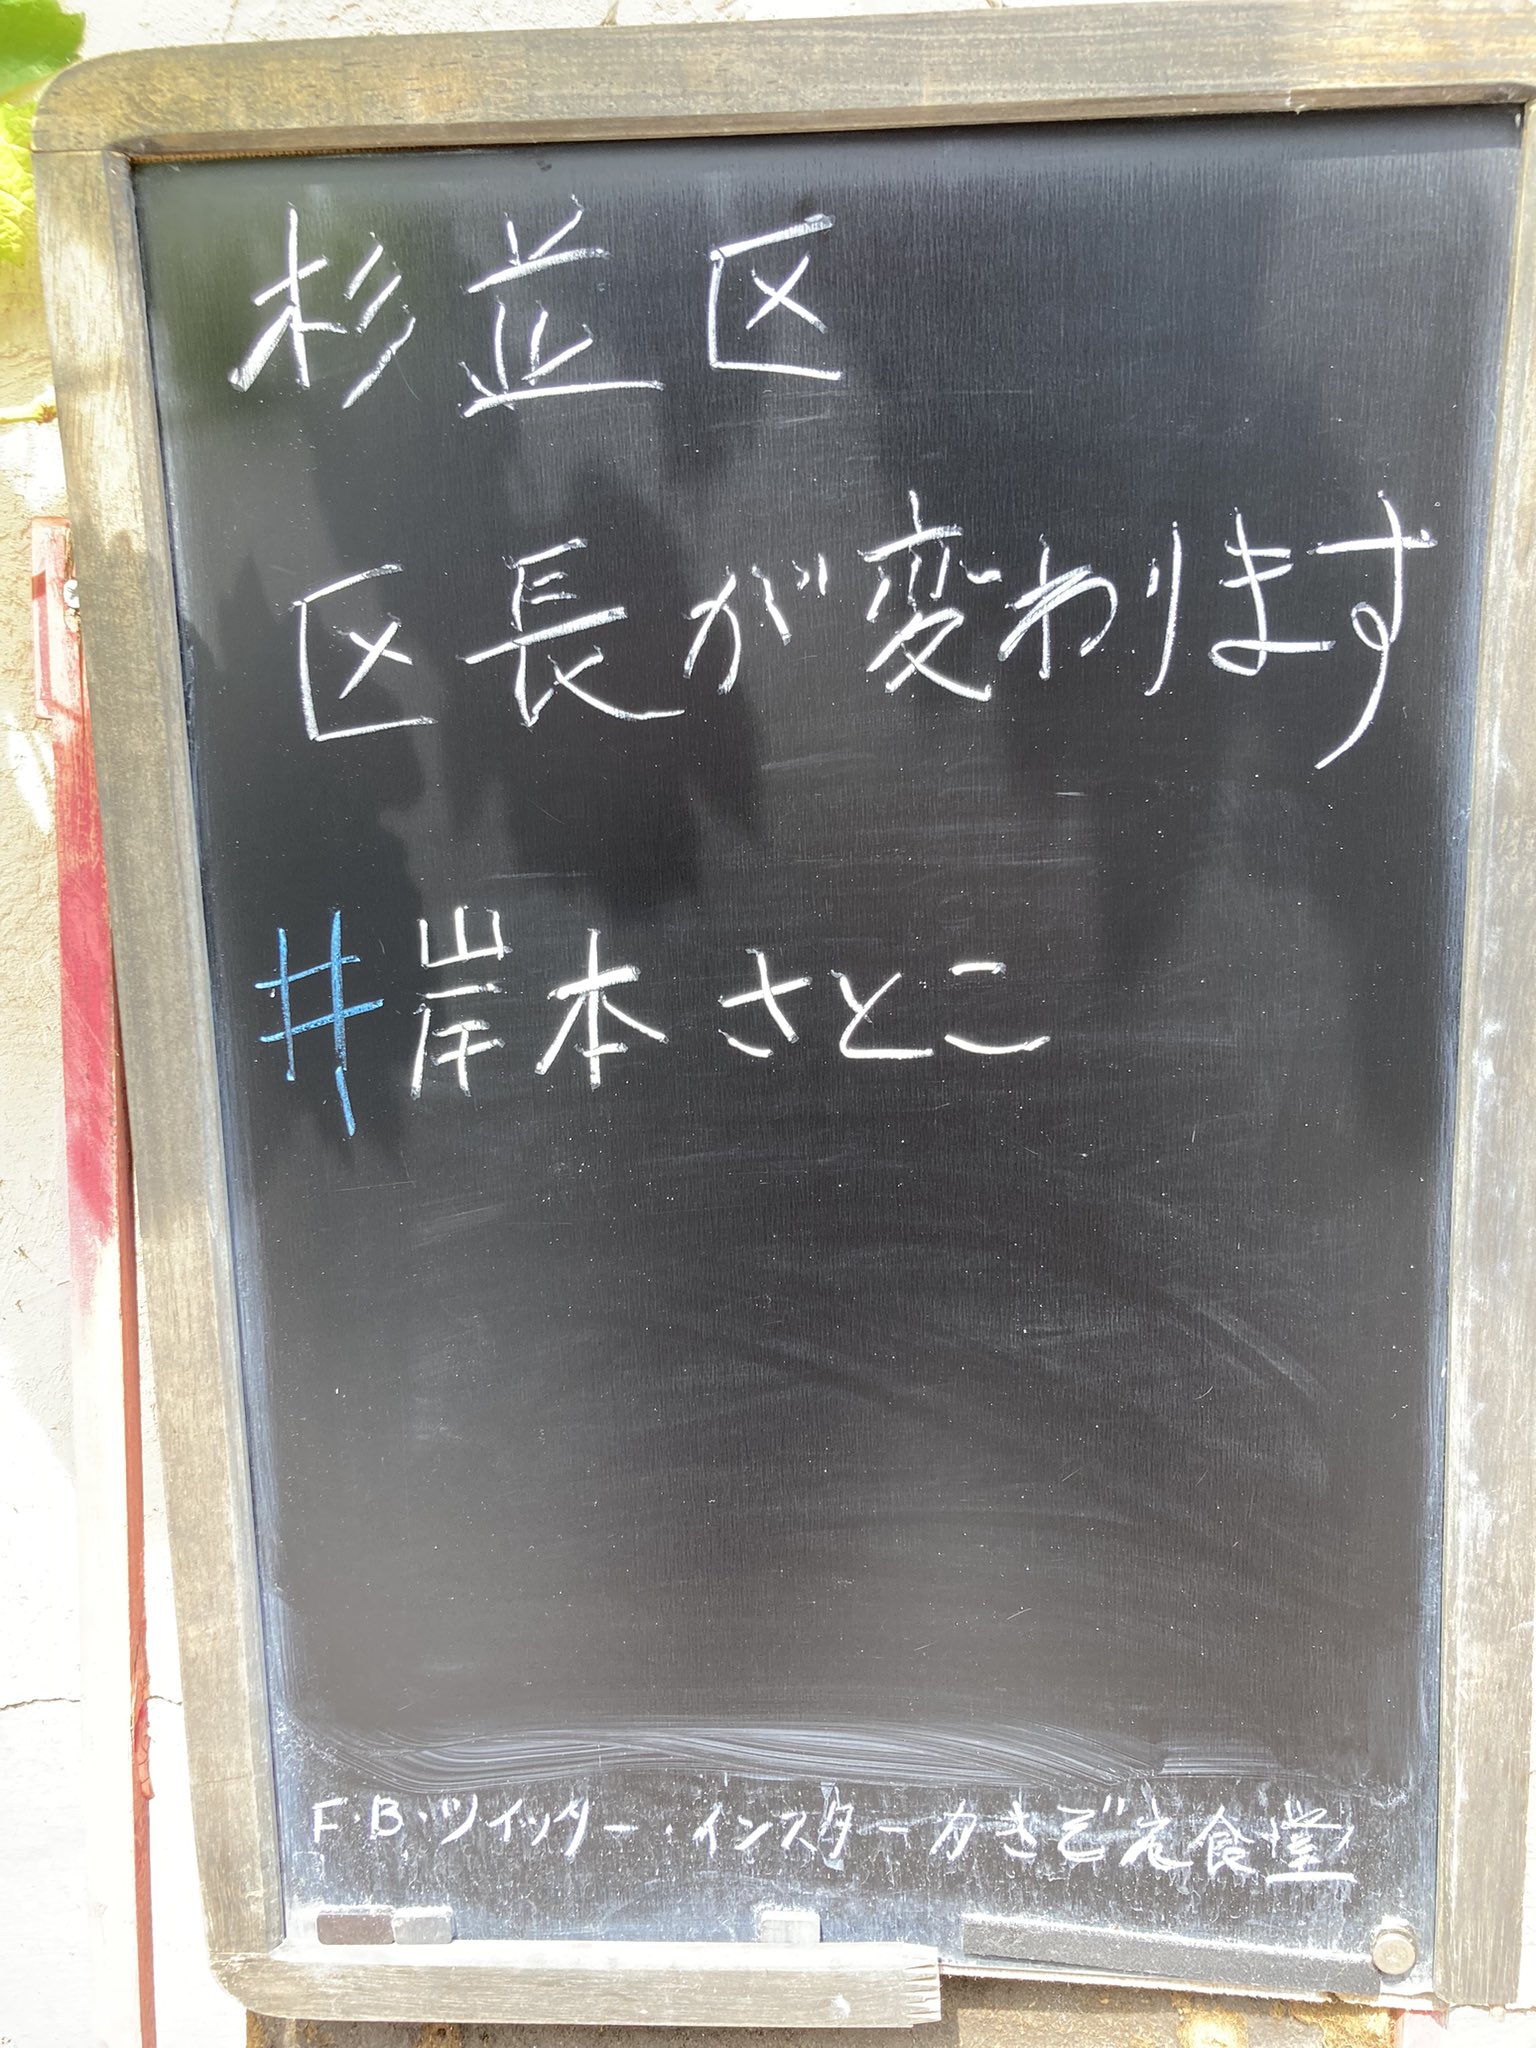 杉並区
区長が変わります
#岸本さとこ
F・B・ツイッター・インスターかきぞえ食堂